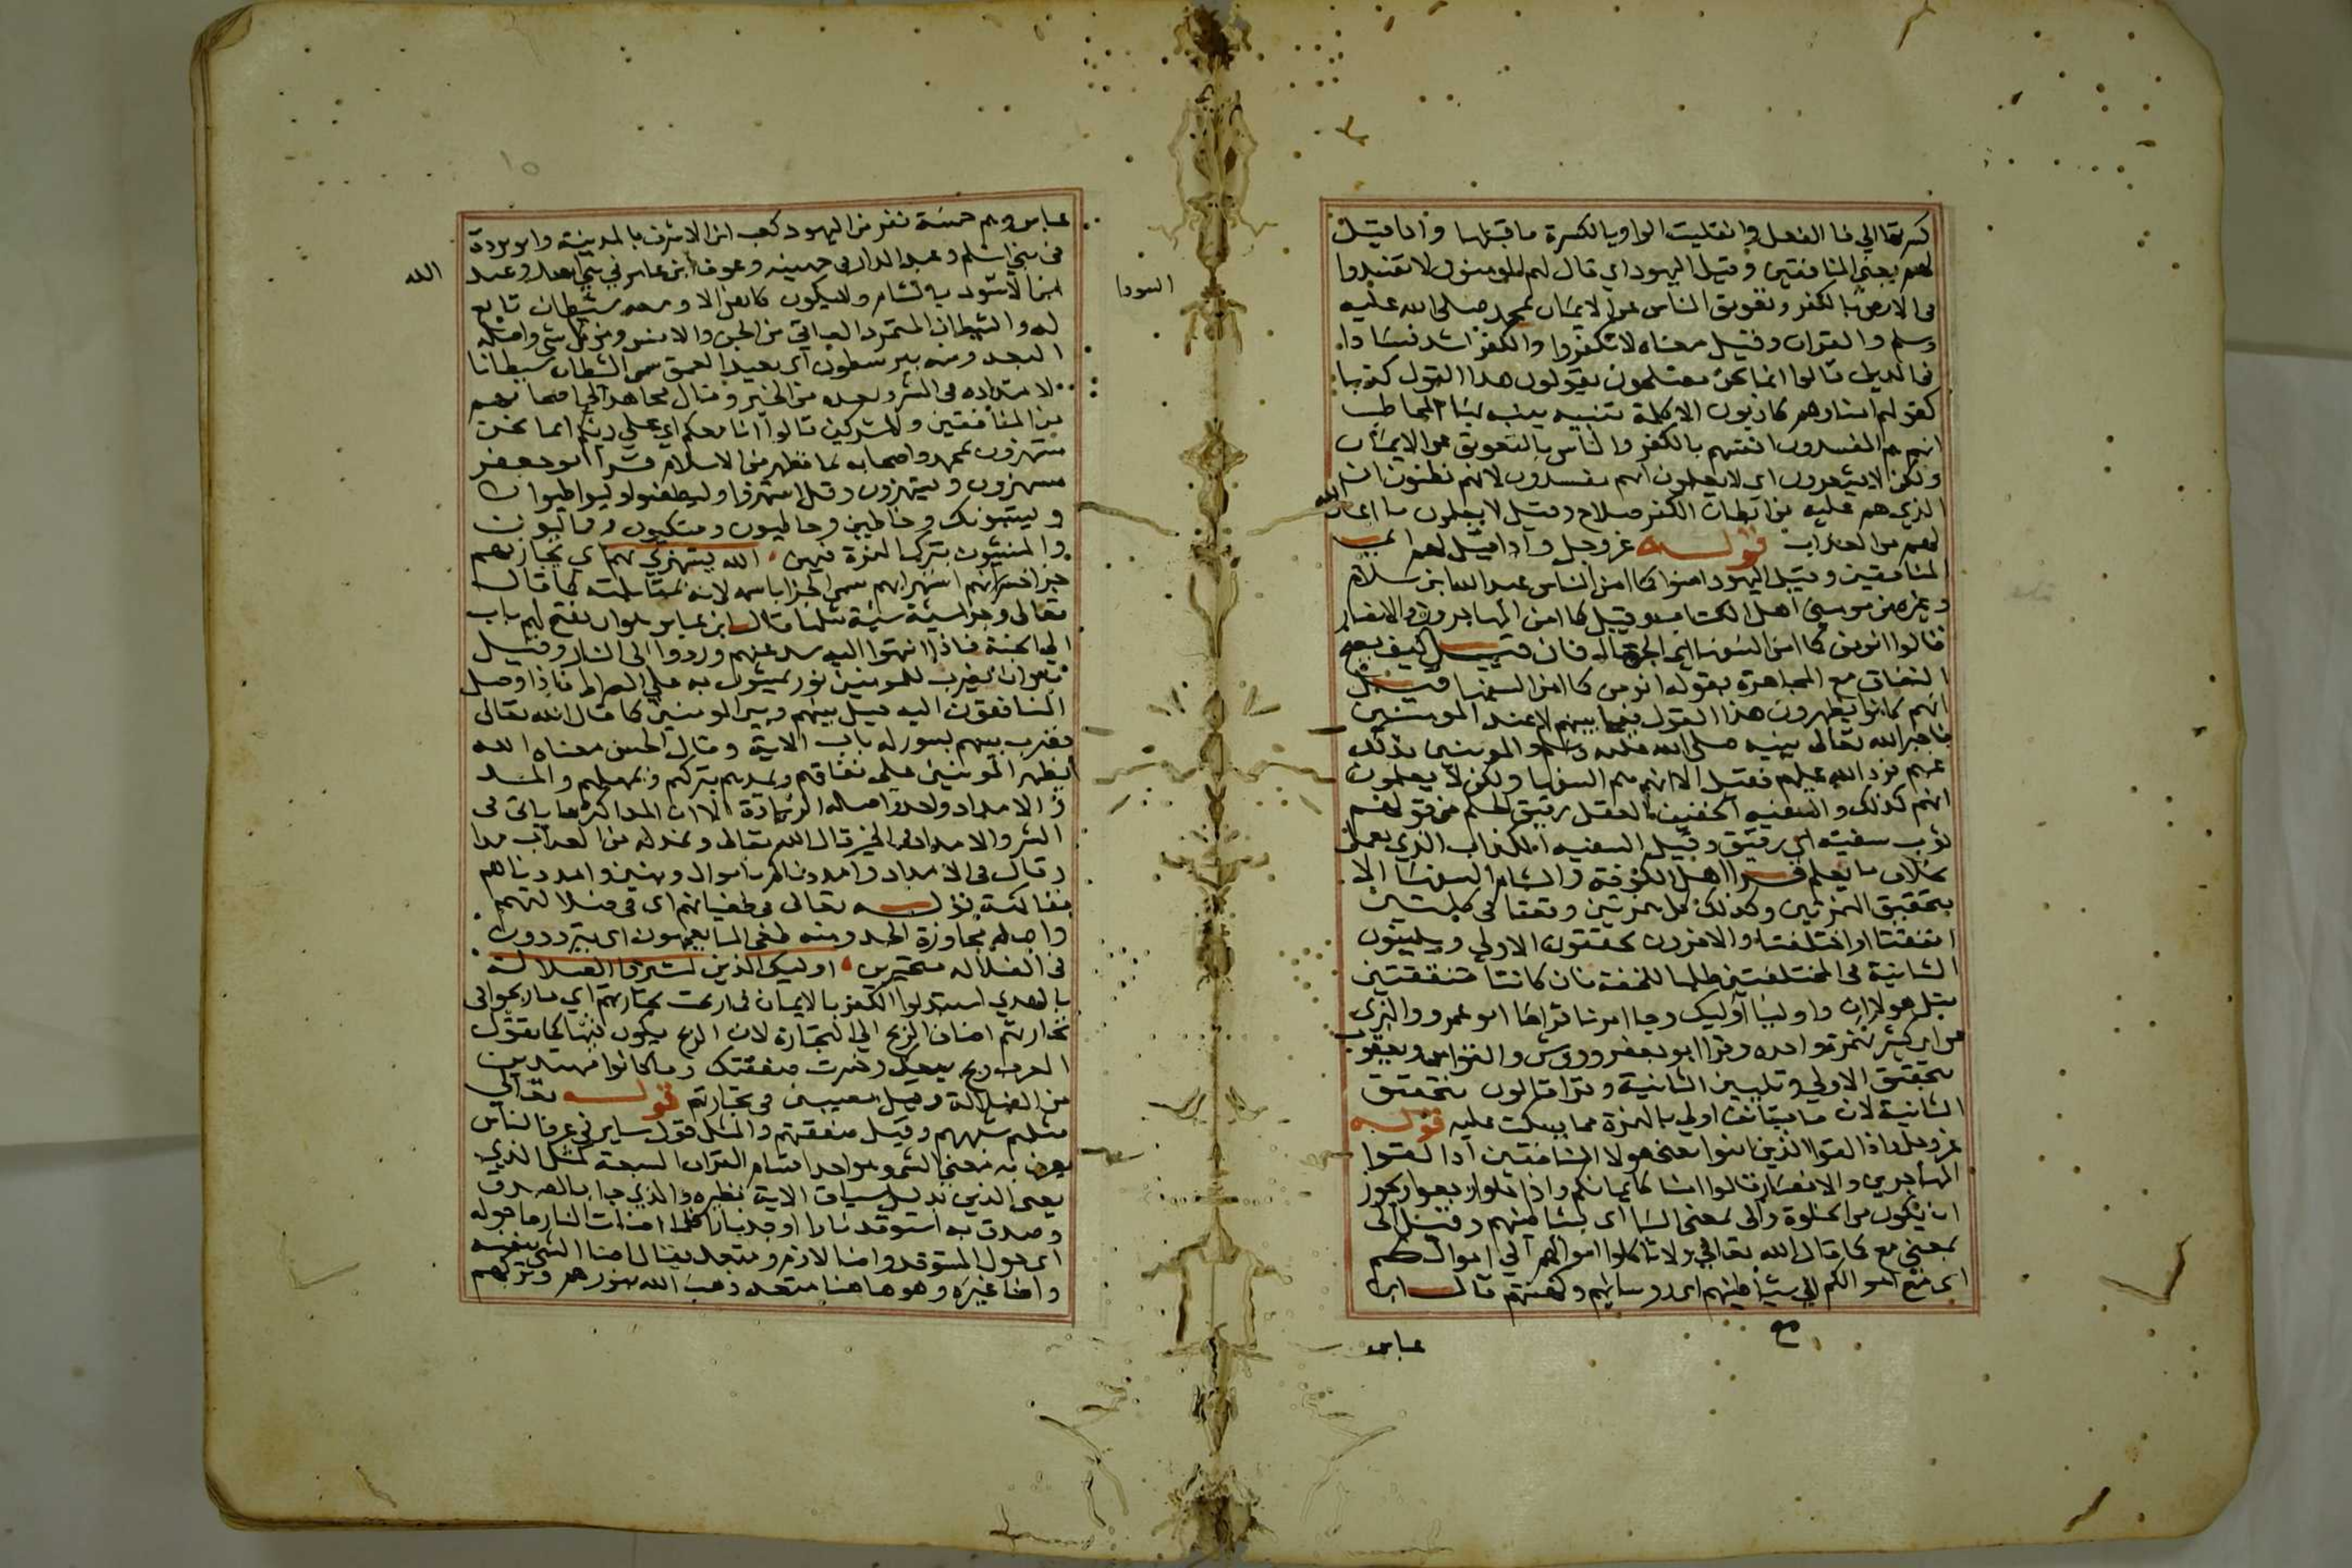 كسرتها الي فا الفعل وانقلبت الواو يا لكسرة ما قبلها واذا قيل
لهم يعني المنافقين وقيل اليهود اي قال لهم المومنون لا تفسدوا
في الارض بالكفر وتعويق الناس عن الايمان بمحمد صلى الله عليه
وسلم والقران وقيل معناه لا تكفروا والكفر اشد فسادا
في الدين قالوا انما نحن مصلحون يقولون هذا القول كذبا
كقولهم امنا وهم كاذبون الا كلمة تنبيه ينبه بها المخاطب
انهم هم المفسدون انفسهم بالكفر والناس بالتعويق عن الايمان
ولكن لا يشعرون اي لا يعلمون انهم مفسدون لانهم يظنون ان
الذي هم عليه من ابطان الكفر صلاح وقيل لا يعلمون ما اعد الله
لهم من العذاب قوله عز وجل واذا قيل لهم اي
المنافقين وقيل اليهود امنوا كما امن الناس عبد الله ابن سلام
وغيره من مومني اهل الكتاب وقيل كما امن المهاجرون والانصار
قالوا انومن كما امن السفها اي الجهال فان قيل كيف يصح
النفاق مع المجاهرة بقوله انومن كما امن السفها قيل
انهم كانوا يظهرون هذا القول فيما بينهم لا عند المومنين
فاخبر الله تعالى نبيه صلى الله عليه وسلم والمومنين بذلك
عنهم فرد الله عليهم فقيل الا انهم هم السفها ولكن لا يعلمون
انهم كذلك والسفيه الخفيف العقل رقيق الحلم من قولهم
ثوب سفيه اي رقيق وقيل السفيه الكذاب الذي يعمل
بخلاف ما يعلم قرا اهل الكوفة والشام السفها الا
بتحقيق الهمزتين وكذلك كل همزتين وقعتا في كلمتين
اتفقتا او اختلفتا والاخرون يحققون الاولى ويلينون
الثانية في المختلفتين طلبا للخفة فان كانتا متفقتين
مثل هولا ان واوليا اوليك وجا امرنا قراها ابو عمرو والبزي
عن ابن كثير بهمزة واحده وقرا ابو جعفر وورش والقواس ويعقوب
بتحقيق الاولى وتليين الثانية وقرا قالون بتحقيق
الثانية لان ما يستانف اولي بالهمزة مما يسكت عليه قوله
عز وجل واذا لقوا الذين امنوا يعني هولا المنافقين اذا لقوا
المهاجرين والانصار قالوا امنا كايمانكم واذا خلوا رجعوا ويجوز
ان يكون من الخلوة والى بمعنى البا اي بشياطينهم وقيل الى
بمعنى مع كما قال الله تعالى ولا تاكلوا اموالهم الى اموالكم
اي مع اموالكم الي شياطينهم اي روسايهم وكهنتهم قال ابن
مع
عباس
السودا
الله
١٥
عباس وهم خمسة نفر من اليهود كعب ابن الاشرف بالمدينة وابو بردة
في بني اسلم وعبد الدار في جهينه وعوف ابن عامر في بني اسد وعبد
ابن الاسود بالشام ولا يكون كاهن الا ومعه شيطان تابع
له والشيطان المتمرد العاتي من الجن والانس ومن كل شي واصله
البعد ومنه بير شطون اي بعيد العمق سمى الشيطان شيطانا
لامتداده في الشر وبعده من الخير وقال مجاهد الي اصحابهم
من المنافقين والمشركين قالوا انا معكم اي على دينكم انما نحن
مستهزون بمحمد واصحابه بما نظهر من الاسلام قرا ابو جعفر
مستهزون ويستهزون وقل استهزوا وليطفوا وليواطوا
ويستنبونك وخاطين وخاطون ومتكون وفمالون
والمنشون بترك الهمزة فيهن الله يستهزي بهم اي يجازيهم
جزا استهزايهم سمى الجزا باسمه لانه بمقابلته كما قال
تعالى وجزا سيئة سيئة مثلها قال ابن عباس هو ان يفتح لهم باب
الي الجنة فاذا انتهوا اليه سد عنهم وردوا الى النار وقيل
هو ان يضرب للمومنين نور يمشون به على الصراط فاذا وصل
المنافقون اليه حيل بينهم وبين المومنين كما قال الله تعالى
فضرب بينهم بسور له باب الاية وقال الحسن معناه الله
يظهر المومنين على نفاقهم ويمدهم يتركهم ويمهلهم والمد
والامداد واحد واصله الزيادة الا ان المد اكثر ما ياتي في
الشر والامداد في الخير قال الله تعالى ونمد له من العذاب مدا
وقال في الامداد وامددناكم باموال وبنين وامددناهم
بفاكهة قوله تعالى في طغيانهم اي في ضلالتهم
واصله مجاوزة الحد ومنه طغى الما يعمهون اي يترددون
في الضلاله متحيرين اوليك الذين اشتروا الضلالة
بالهدي استبدلوا الكفر بالايمان فما ربحت تجارتهم اي ما ربحوا في
تجارتهم اضاف الربح الي التجارة لان الربح يكون فيها كما تقول
العرب ربح بيعك وخسرت صفقتك وما كانوا مهتدين
من الضلالة وقيل مصيبين في تجارتهم قوله تعالى
مثلهم شبههم وقيل صفتهم والمثل قول ساير في عرف الناس
يعرف به معنى الشي وهو احد اقسام القران السبعة كمثل الذي
يعني الذين بدليل سياق الاية نظيره والذي جا بالصدق
وصدق به استوقد نارا اوقد نارا فلما اضات النار ما حوله
اي حول المستوقد واضا لازم ومتعد يقال اضا الشي بنفسه
واضا غيره وهو هاهنا متعد ذهب الله بنورهم وتركهم